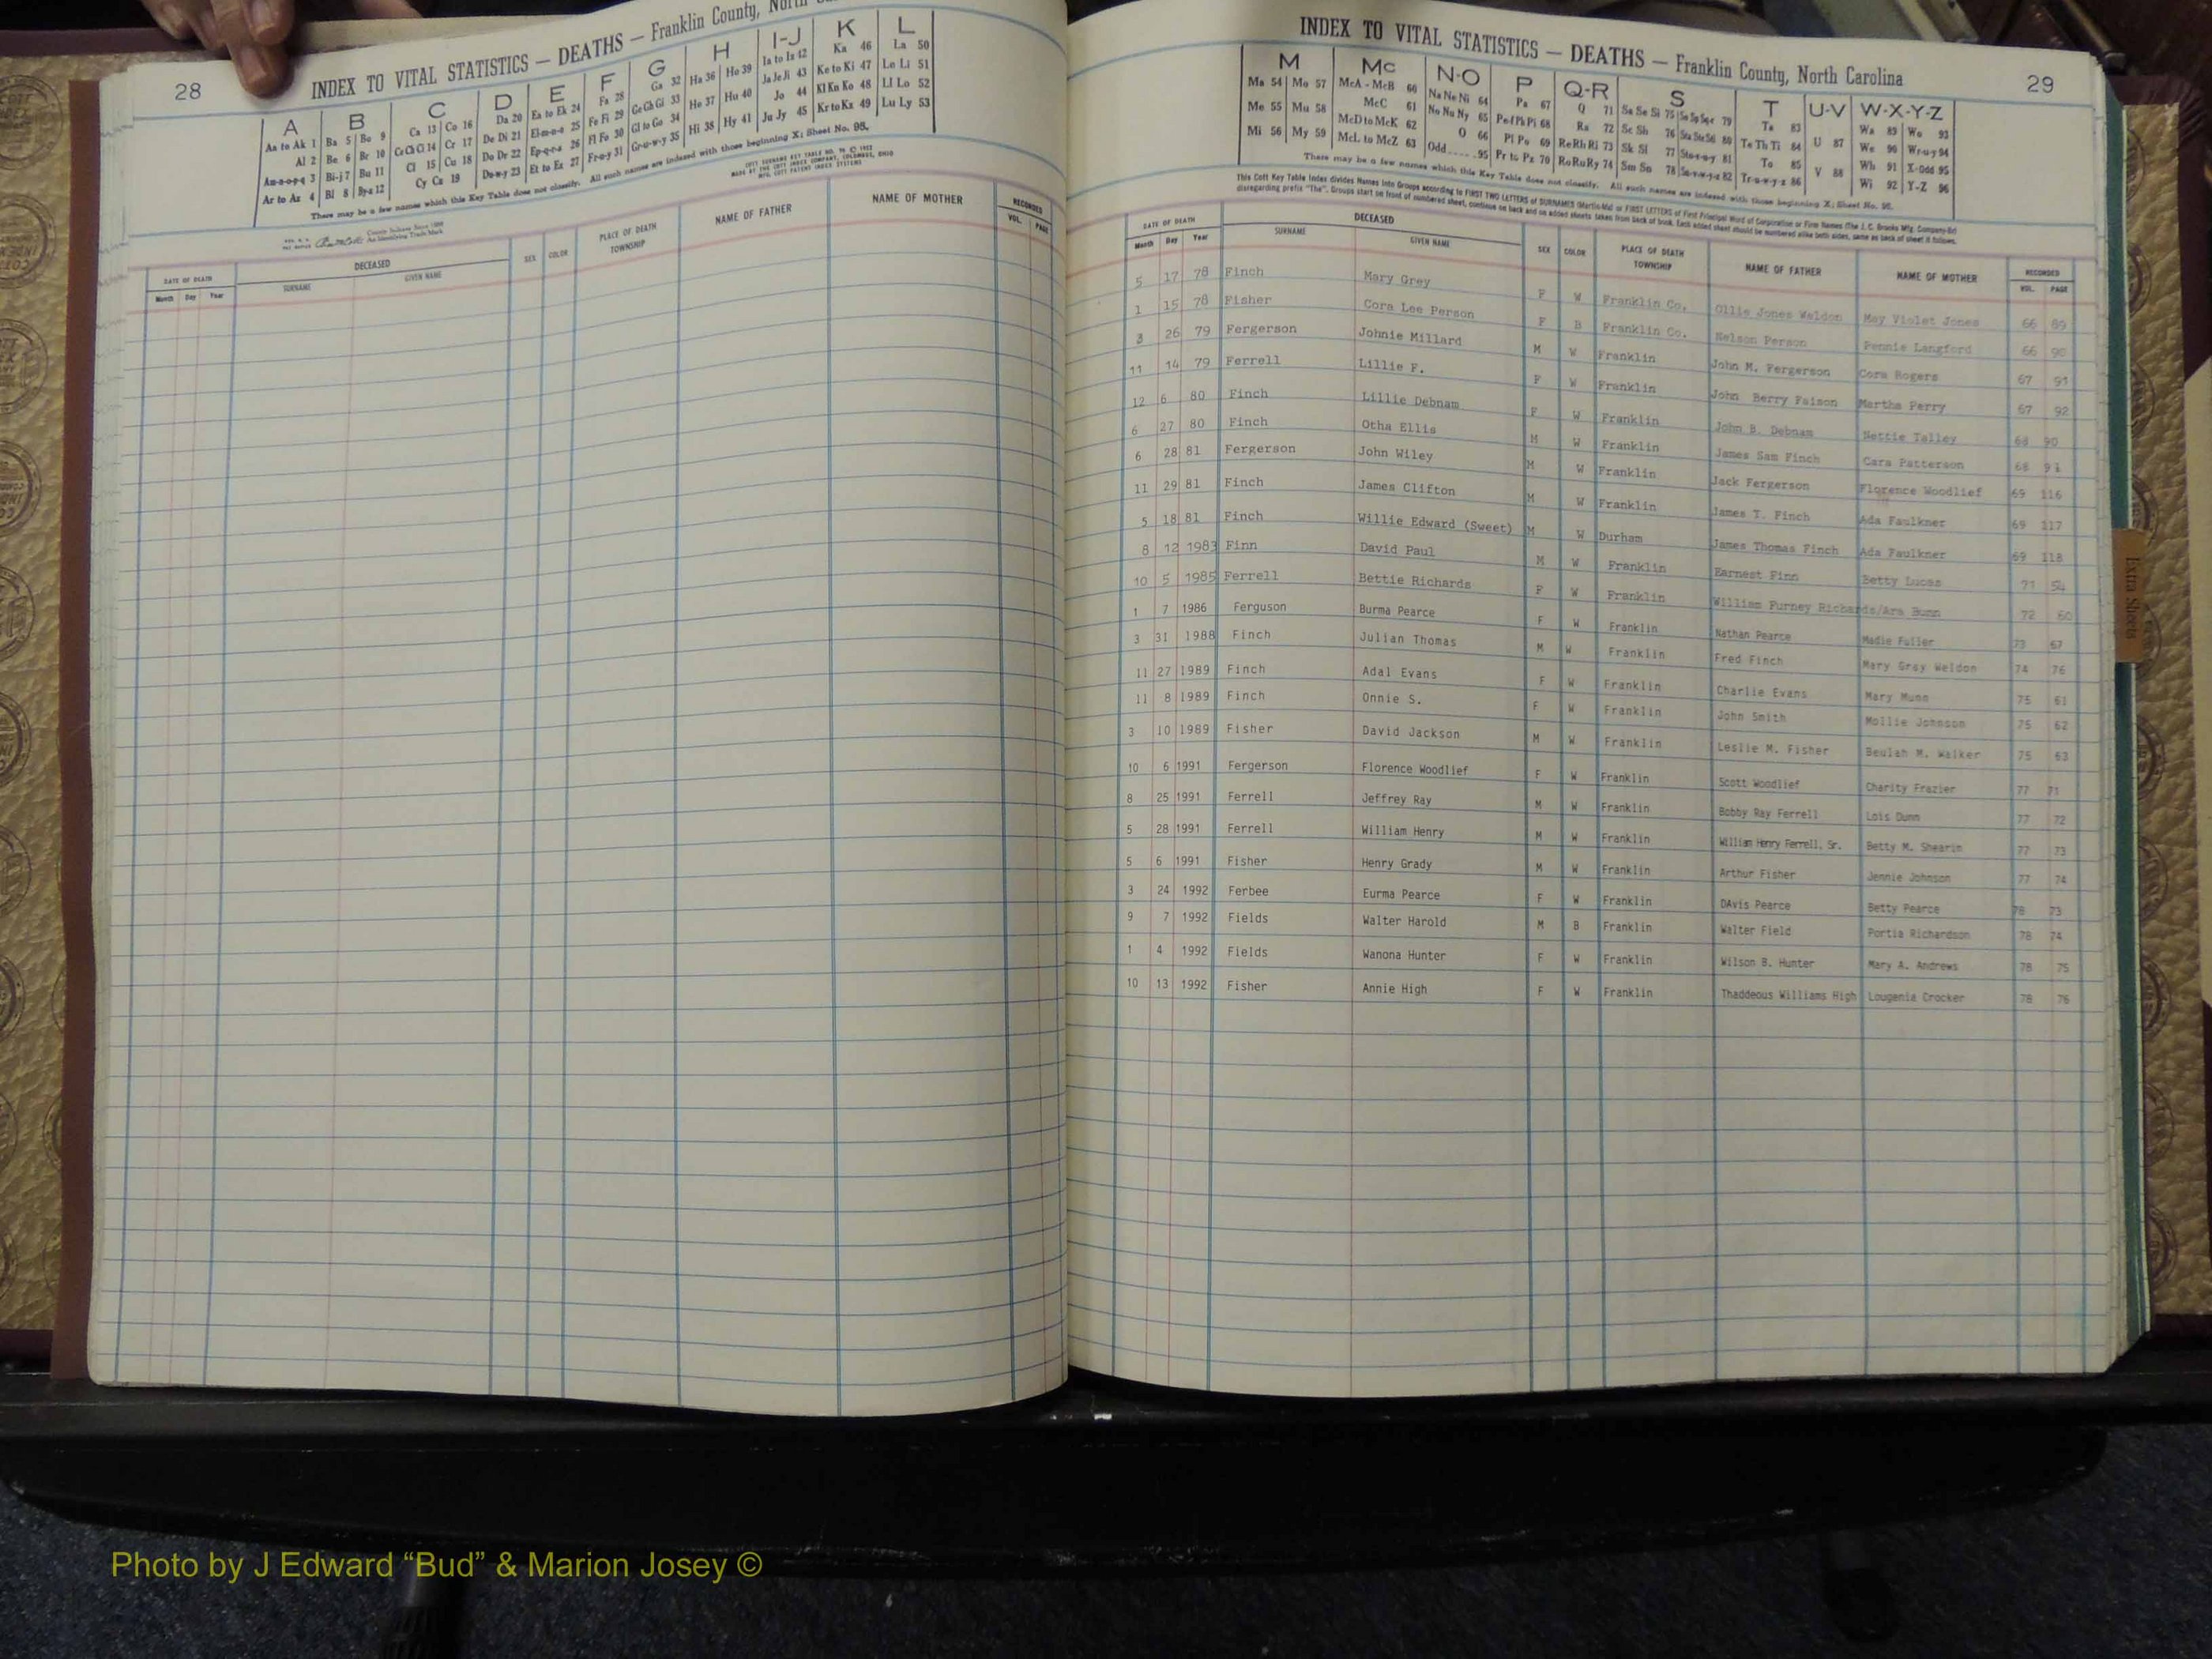 28
INDEX TO VITAL STATISTICS — DEATHS — Franklin County, North
A B C D E F G H I-J K L
Aa to Ak 1 Ba 5 Be 9 Ca 13 Co 16 Da 20 Ea to Ek 24 Fa 28 Ga 32 Ha 36 Ho 39 Ia to Iz 12 Ka 46 La 50
Al 2 Be 6 Br 10 Ce Ch Ci 14 Cr 17 De Di 21 El-m-n-o 25 Fe Fi 29 Ge Gh Gi 33 He 37 Hu 40 Ja Je Ji 43 Ke to Ki 47 Le Li 51
Bi-j 7 Bu 11 Cl 15 Cu 18 Do Dr 22 Ep-q-r-s 26 Fl Fo 30 Gl to Go 34 Hi 38 Hy 41 Jo 44 Kl Kn Ko 48 Ll Lo 52
Ar to Az 4 Bl 8 By-z 12 Cy Cz 19 Du-w-y 23 Et to Ez 27 Fr-u-y 31 Gr-u-w-y 35 Ju Jy 45 Kr to Kz 49 Lu Ly 53
There may be a few names which this Key Table does not classify. All such names are indexed with those beginning X; Sheet No. 95.
DATE OF DEATH DECEASED SEX COLOR PLACE OF DEATH TOWNSHIP NAME OF FATHER NAME OF MOTHER RECORDED
Month Day Year SURNAME GIVEN NAME VOL. PAGE
INDEX TO VITAL STATISTICS — DEATHS — Franklin County, North Carolina
29
M Mc N-O P Q-R S T U-V W-X-Y-Z
Ma 54 Mo 57 McA - McB 60 Na Ne Ni 64 Pa 67 Q 71 Sa Se Si 75 79 Ta 83 Wa 89 Wo 93
Me 55 Mu 58 McC 61 No Nu Ny 65 Pe-f Ph Pi 68 Ra 72 Sc Sh 76 80 Te Th Ti 84 U 87 We 90 Wr-u-y 94
McD to McK 62 O 66 Pl Po 69 Re Rh Ri 73 Sk Sl 77 81 To 85 Wh 91 X-Odd 95
Mi 56 My 59 McL to McZ 63 Odd 95 Pr to Pz 70 Ro Ru Ry 74 Sm Sn 78 82 Tr-u-w-y-z 86 V 88 Wi 92 Y-Z 96
There may be a few names which this Key Table does not classify. All such names are indexed with those beginning X; Sheet No. 95.
This Cott Key Table Index divides Names into Groups according to FIRST TWO LETTERS of SURNAMES (Martin-Ma) or FIRST LETTERS of First Principal Word of Corporation or Firm Names (The J. C. Brooks Mfg. Company-Br)
disregarding prefix "The". Groups start on front of numbered sheet, continue on back and on added sheets taken from back of book. Each added sheet should be numbered alike both sides, same as back of sheet it follows.
DATE OF DEATH DECEASED SEX COLOR PLACE OF DEATH TOWNSHIP NAME OF FATHER NAME OF MOTHER RECORDED
Month Day Year SURNAME GIVEN NAME VOL. PAGE
5 17 78 Finch Mary Grey F W Franklin Co. Ollie Jones Weldon May Violet Jones 66 89
1 15 78 Fisher Cora Lee Person F B Franklin Co. Nelson Person Pennie Langford 66 90
3 26 79 Fergerson Johnie Millard M W Franklin John M. Fergerson Cora Rogers 67 91
11 14 79 Ferrell Lillie F. F W Franklin John Berry Faison Martha Perry 67 92
12 6 80 Finch Lillie Debnam F W Franklin John B. Debnam Nettie Talley 68 90
6 27 80 Finch Otha Ellis M W Franklin James Sam Finch Cara Patterson 68 91
6 28 81 Fergerson John Wiley M W Franklin Jack Fergerson Florence Woodlief 69 116
11 29 81 Finch James Clifton M W Franklin James T. Finch Ada Faulkner 69 117
5 18 81 Finch Willie Edward (Sweet) M W Durham James Thomas Finch Ada Faulkner 69 118
8 12 1983 Finn David Paul M W Franklin Earnest Finn Betty Lucas 71 54
10 5 1985 Ferrell Bettie Richards F W Franklin William Furney Richards/Ara Bunn 72 60
1 7 1986 Ferguson Burma Pearce F W Franklin Nathan Pearce Madie Fuller 73 67
3 31 1988 Finch Julian Thomas M W Franklin Fred Finch Mary Gray Weldon 74 76
11 27 1989 Finch Adal Evans F W Franklin Charlie Evans Mary Munn 75 61
11 8 1989 Finch Onnie S. F W Franklin John Smith Mollie Johnson 75 62
3 10 1989 Fisher David Jackson M W Franklin Leslie M. Fisher Beulah M. Walker 75 63
10 6 1991 Fergerson Florence Woodlief F W Franklin Scott Woodlief Charity Frazier 77 71
8 25 1991 Ferrell Jeffrey Ray M W Franklin Bobby Ray Ferrell Lois Dunn 77 72
5 28 1991 Ferrell William Henry M W Franklin William Henry Ferrell, Sr. Betty M. Shearin 77 73
5 6 1991 Fisher Henry Grady M W Franklin Arthur Fisher Jennie Johnson 77 74
3 24 1992 Ferbee Eurma Pearce F W Franklin DAvis Pearce Betty Pearce 78 73
9 7 1992 Fields Walter Harold M B Franklin Walter Field Portia Richardson 78 74
1 4 1992 Fields Wanona Hunter F W Franklin Wilson B. Hunter Mary A. Andrews 78 75
10 13 1992 Fisher Annie High F W Franklin Thaddeous Williams High Lougenia Crocker 78 76
Extra Sheets
Photo by J Edward “Bud” & Marion Josey ©